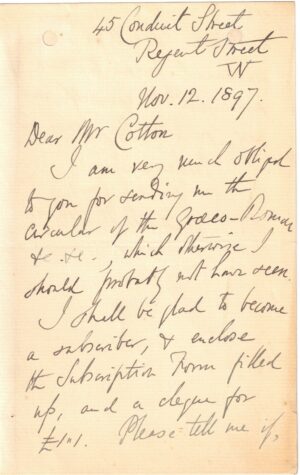 45 Conduit Street
Regent Street
W
Nov. 12. 1897.
Dear Mr Cotton
I am very much obliged
to you for sending me the
circular of the Græco-Roman
&c. &c., which otherwise I
should probably not have seen.
I shall be glad to become
a subscriber, & enclose
the Subscription Form filled
up, and a cheque for
£1"1. Please tell me if,